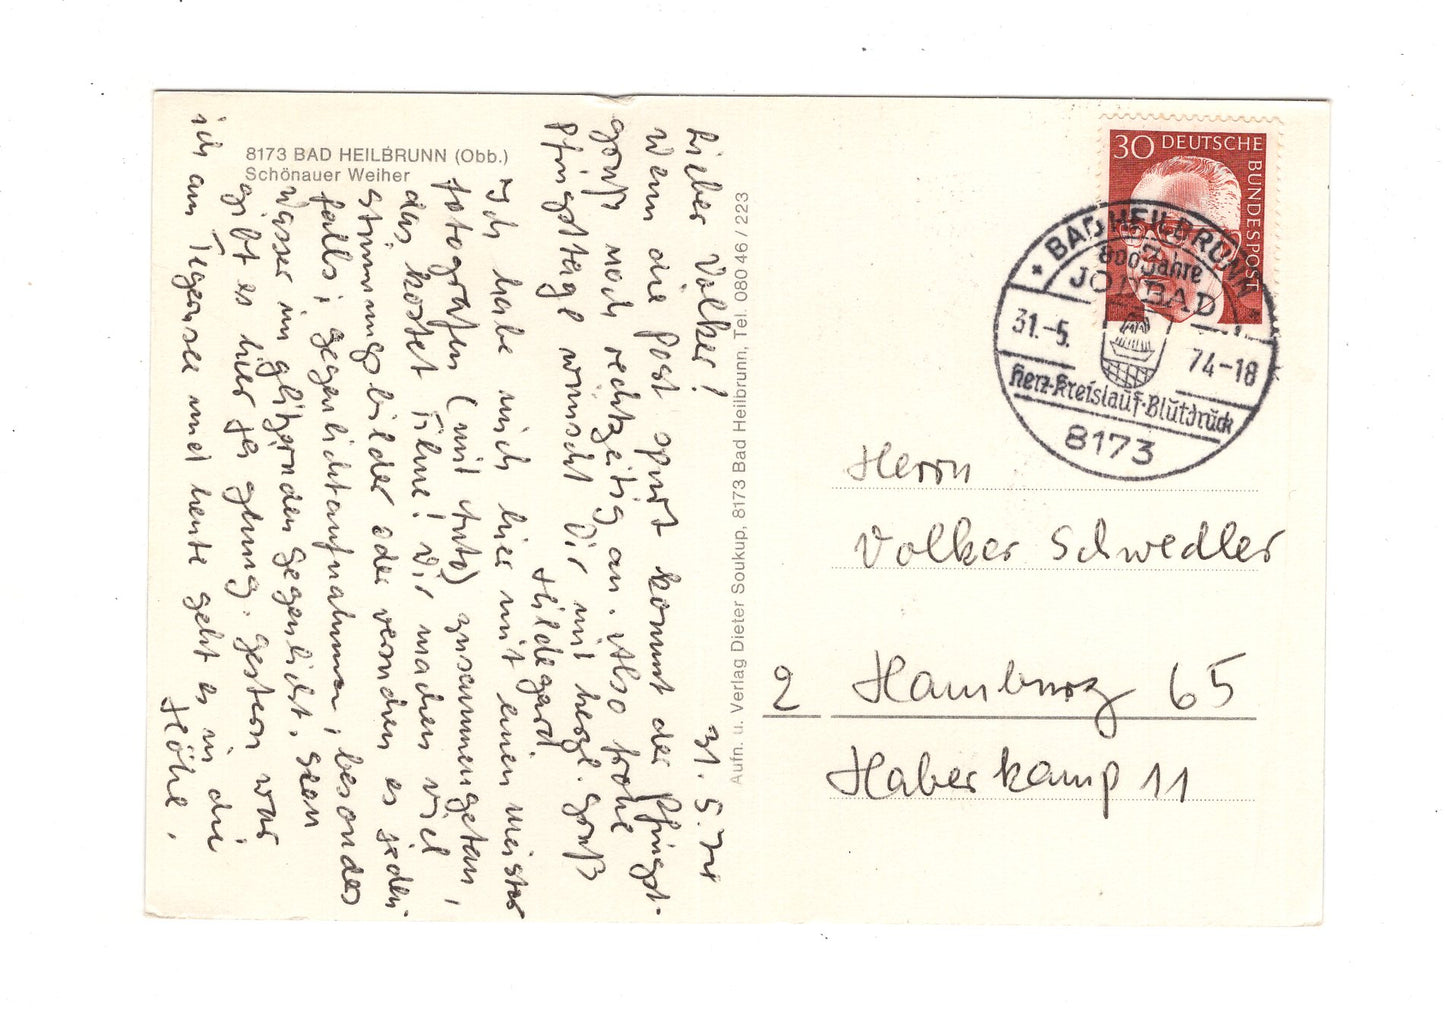 8173 BAD HEILBRUNN (Obb.)
Schönauer Weiher
31.5.74
Lieber Volker!
Wenn die Post spurt kommt der Pfingst-
gruß noch rechtzeitig an. Also frohe
Pfingsttage wünscht Dir mit herzl. Gruß
Hildegard.
Ich habe mich hier mit einem Meister
fotografen (mit Auto) zusammengetan,
das kostet Filme! Wir machen viel
Stimmungsbilder oder versuchen es jeden-
falls, Gegenlichtaufnahmen, besonders
Wasser im glitzernden Gegenlicht, Seen
gibt es hier ja genug. Gestern war
ich am Tegernsee und heute geht es in die
Höhe.
Aufn. u. Verlag Dieter Soukup, 8173 Bad Heilbrunn, Tel. 080 46 / 223
30 DEUTSCHE
BUNDESPOST
* BAD HEILBRUNN *
800 Jahre
JODBAD
31.-5.
74-18
Herz-Kreislauf-Blutdruck
8173
Herrn
Volker Schwedler
2 Hamburg 65
Haberkamp 11